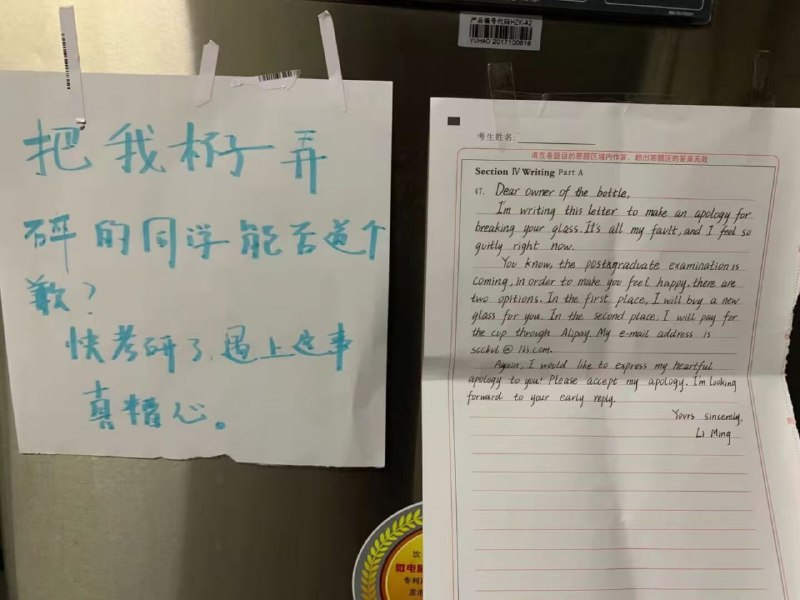 产品编号代码HZK-A2
YUHAO 2017100616
把我杯子弄
碎的同学能否道个
歉？
快考研了,遇上这事
真糟心。
考生姓名:
请在各题目的答题区域内作答，超出答题区的答案无效
Section Ⅳ Writing Part A
47. Dear owner of the bottle,
I'm writing this letter to make an apology for
breaking your glass. It's all my fault, and I feel so
guitly right now.
You know, the postgraduate examination is
coming, in order to make you feel happy, there are
two opitions. In the first place, I will buy a new
glass for you. In the second place, I will pay for
the cup through Alipay. My e-mail address is
@ 163.com.
Again, I would like to express my heartful
apology to you! Please accept my apology. I'm looking
forward to your early reply.
Yours sincerely,
Li Ming
饮
微电脑
专利